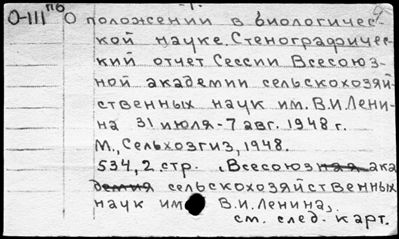 О-III ПБ О положении в биологичес-
кой науке. Стенографичес-
кий отчет Сессии Всесоюз-
ной академии сельскохозяй-
ственных наук им. В.И. Лени-
на 31 июля-7 авг. 1948 г.
М., Сельхозгиз, 1948.
534, 2 стр. (Всесоюзная ака
демия сельскохозяйственных
наук им В.И. Ленина,
см. след. карт.